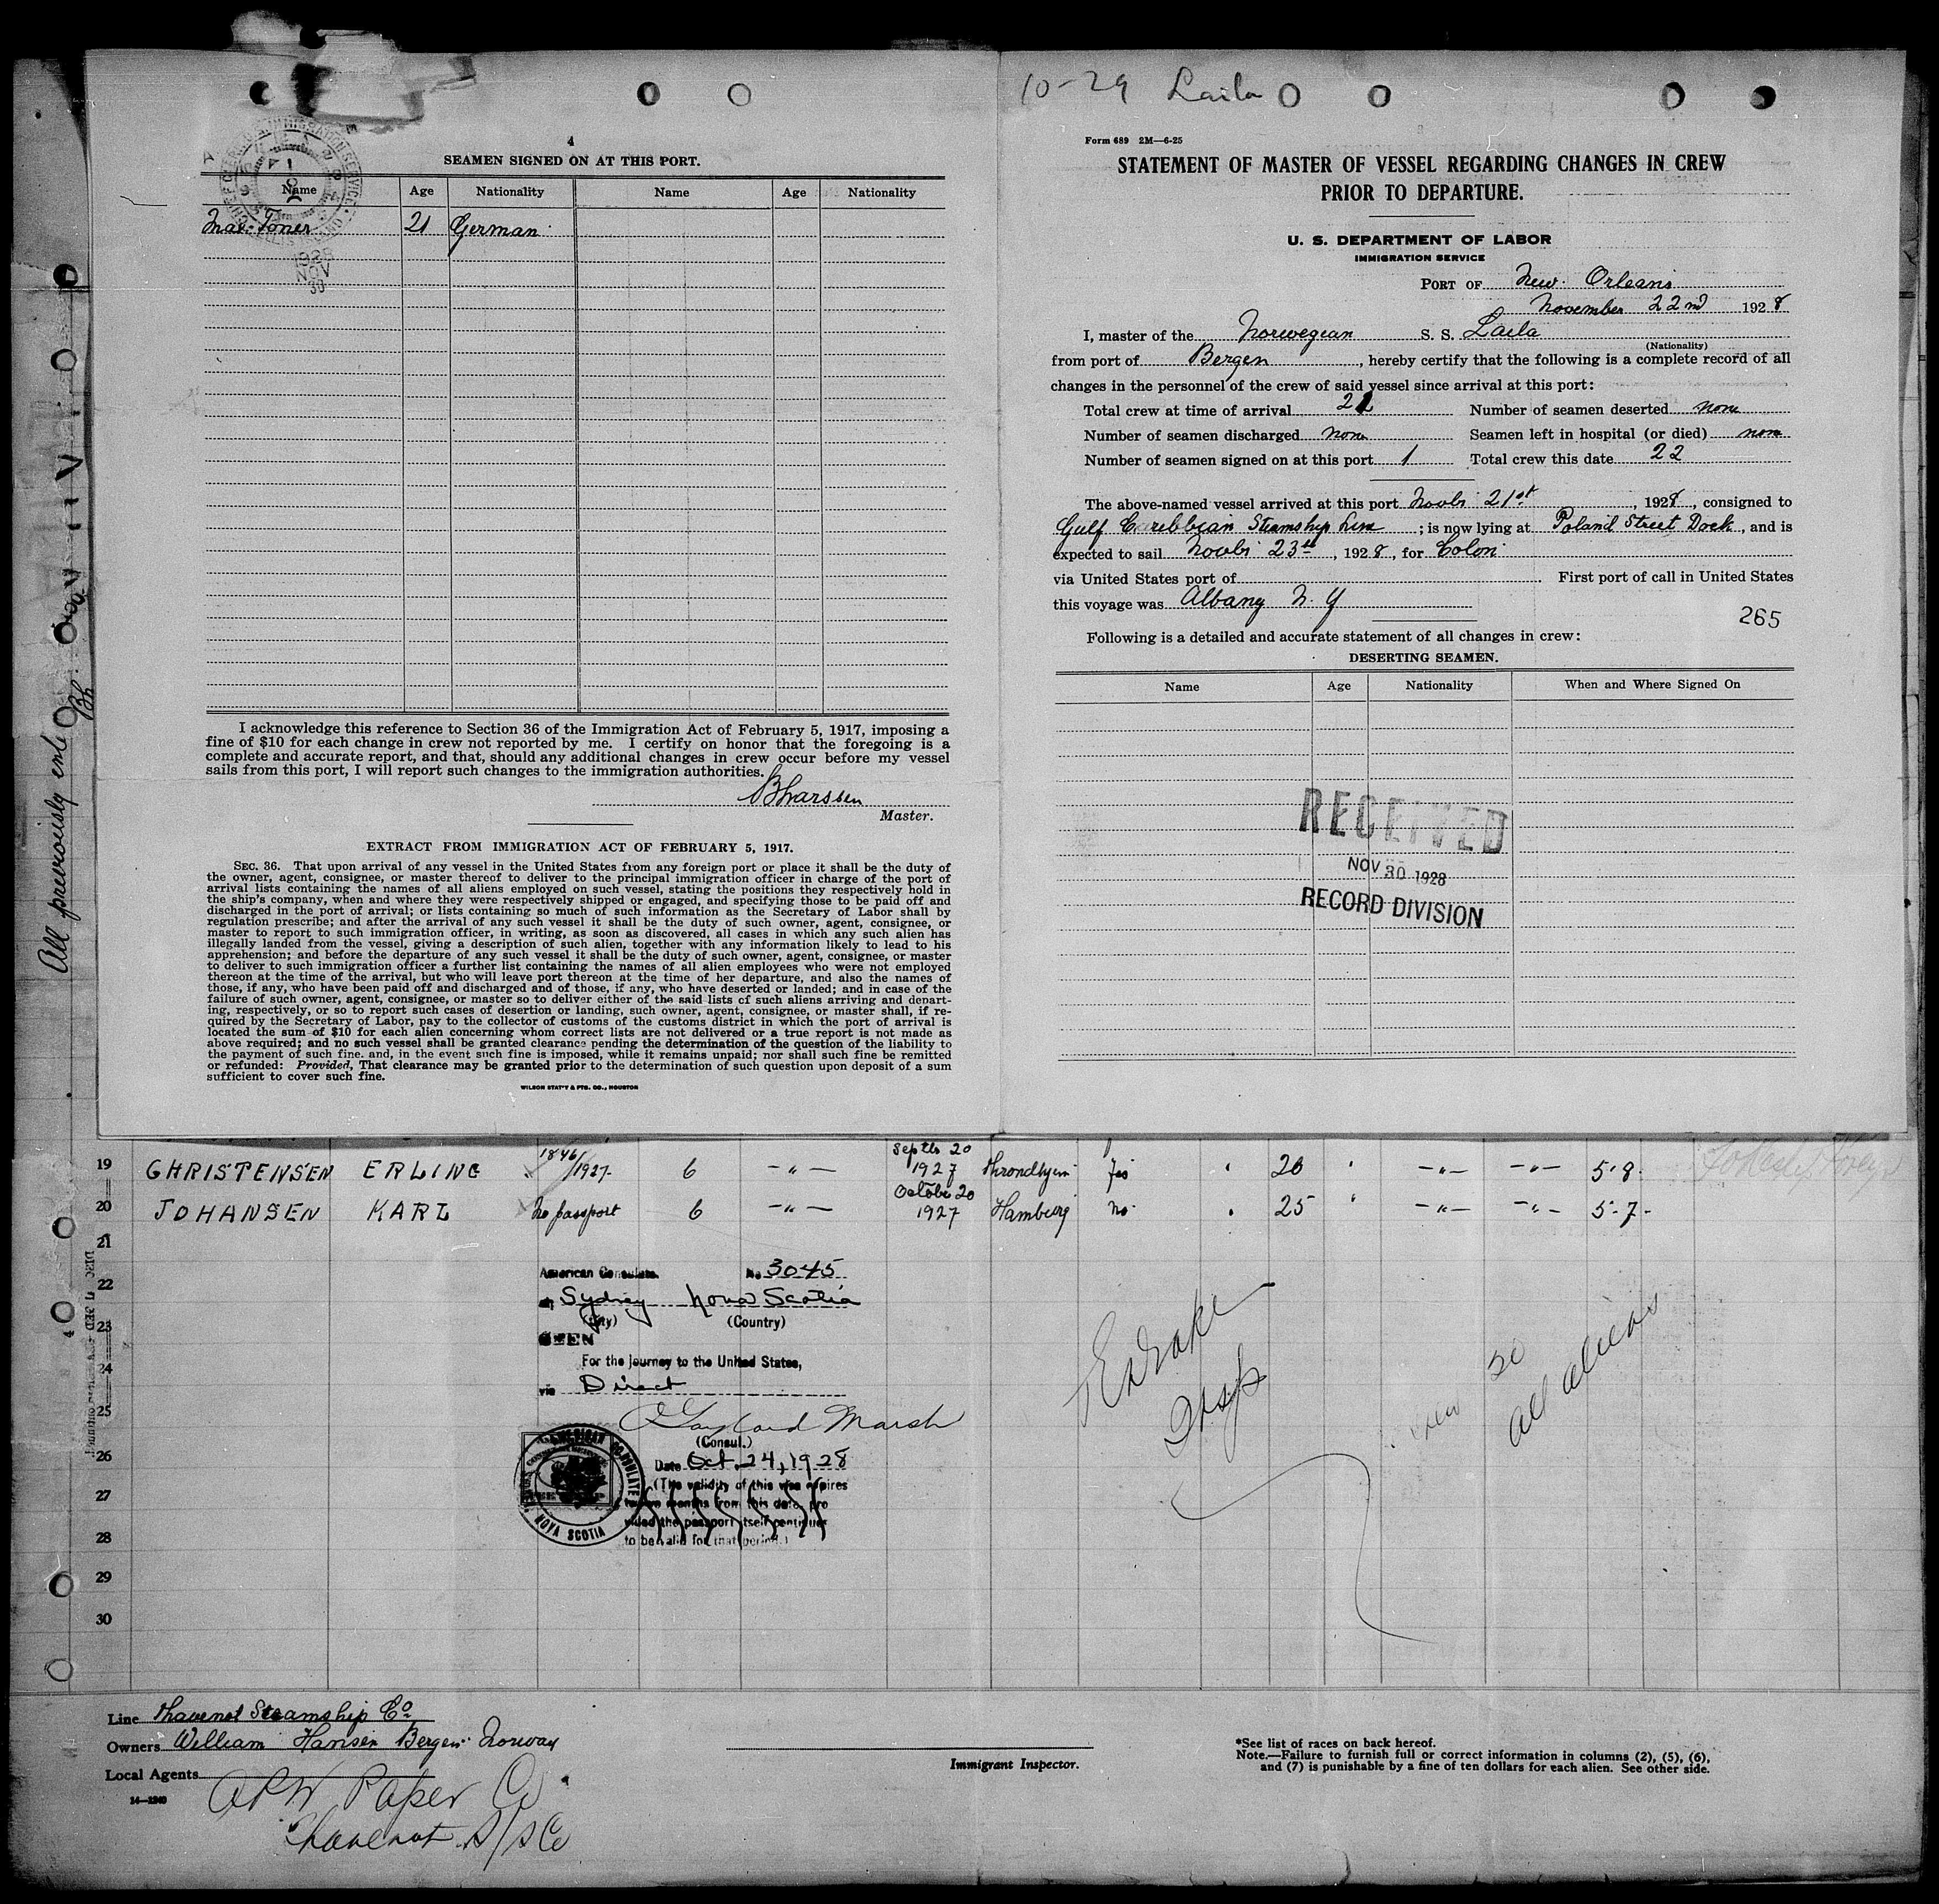 10-29 Laila
4
SEAMEN SIGNED ON AT THIS PORT.
Name Age Nationality Name Age Nationality
Max Toner 21 German
1928
NOV
30
I acknowledge this reference to Section 36 of the Immigration Act of February 5, 1917, imposing a
fine of $10 for each change in crew not reported by me. I certify on honor that the foregoing is a
complete and accurate report, and that, should any additional changes in crew occur before my vessel
sails from this port, I will report such changes to the immigration authorities.
BLarssen
Master.
EXTRACT FROM IMMIGRATION ACT OF FEBRUARY 5, 1917.
SEC. 36. That upon arrival of any vessel in the United States from any foreign port or place it shall be the duty of
the owner, agent, consignee, or master thereof to deliver to the principal immigration officer in charge of the port of
arrival lists containing the names of all aliens employed on such vessel, stating the positions they respectively hold in
the ship's company, when and where they were respectively shipped or engaged, and specifying those to be paid off and
discharged in the port of arrival; or lists containing so much of such information as the Secretary of Labor shall by
regulation prescribe; and after the arrival of any such vessel it shall be the duty of such owner, agent, consignee, or
master to report to such immigration officer, in writing, as soon as discovered, all cases in which any such alien has
illegally landed from the vessel, giving a description of such alien, together with any information likely to lead to his
apprehension; and before the departure of any such vessel it shall be the duty of such owner, agent, consignee, or master
to deliver to such immigration officer a further list containing the names of all alien employees who were not employed
thereon at the time of the arrival, but who will leave port thereon at the time of her departure, and also the names of
those, if any, who have been paid off and discharged and of those, if any, who have deserted or landed; and in case of the
failure of such owner, agent, consignee, or master so to deliver either of the said lists of such aliens arriving and depart-
ing, respectively, or so to report such cases of desertion or landing, such owner, agent, consignee, or master shall, if re-
quired by the Secretary of Labor, pay to the collector of customs of the customs district in which the port of arrival is
located the sum of $10 for each alien concerning whom correct lists are not delivered or a true report is not made as
above required; and no such vessel shall be granted clearance pending the determination of the question of the liability to
the payment of such fine. and, in the event such fine is imposed, while it remains unpaid; nor shall such fine be remitted
or refunded: Provided, That clearance may be granted prior to the determination of such question upon deposit of a sum
sufficient to cover such fine.
WILSON STAT'Y & PTG. CO., HOUSTON
Form 689 2M—6-25
STATEMENT OF MASTER OF VESSEL REGARDING CHANGES IN CREW
PRIOR TO DEPARTURE.
U. S. DEPARTMENT OF LABOR
IMMIGRATION SERVICE
PORT OF New Orleans
November 22nd 1928
I, master of the Norwegian S. S. Laila
(Nationality)
from port of Bergen, hereby certify that the following is a complete record of all
changes in the personnel of the crew of said vessel since arrival at this port:
Total crew at time of arrival 22 Number of seamen deserted none
Number of seamen discharged none Seamen left in hospital (or died) none
Number of seamen signed on at this port 1 Total crew this date 22
The above-named vessel arrived at this port Novbr 21st, 1928, consigned to
Gulf Carebbean Steamship Line; is now lying at Poland Street Dock, and is
expected to sail Novbr 23th, 1928, for Colon
via United States port of First port of call in United States
this voyage was Albany N.Y
265
Following is a detailed and accurate statement of all changes in crew:
DESERTING SEAMEN.
Name Age Nationality When and Where Signed On
RECEIVED
NOV 30 1928
RECORD DIVISION
All previously
19 CHRISTENSEN ERLING 1846/1927 6 -"- Septbr 20 1927 Throndhjem Yes 20 -"- -"- 5-8
20 JOHANSEN KARL No passport 6 -"- October 20 1927 Hamburg no 25 -"- -"- 5-7-
21
22
23
24
25
26
27
28
29
30
American Consulate. No 3045
at Sydney Nova Scotia
(City) (Country)
SEEN
For the journey to the United States,
via Direct
O Gaylord Marsh
(Consul.)
Date Oct. 24, 1928
(The validity of this visa expires
twelve months from this date, pro
vided the passport itself continues
to be valid for that period.)
AMERICAN CONSULATE
NOVA SCOTIA
Insp
20
all aliens
Line Thavenot Steamship Co.
Owners William Hansen Bergen Norway
Local Agents
APW Paper Co
Thavenot S/S Co
14—1240
Immigrant Inspector.
*See list of races on back hereof.
Note.—Failure to furnish full or correct information in columns (2), (5), (6),
and (7) is punishable by a fine of ten dollars for each alien. See other side.